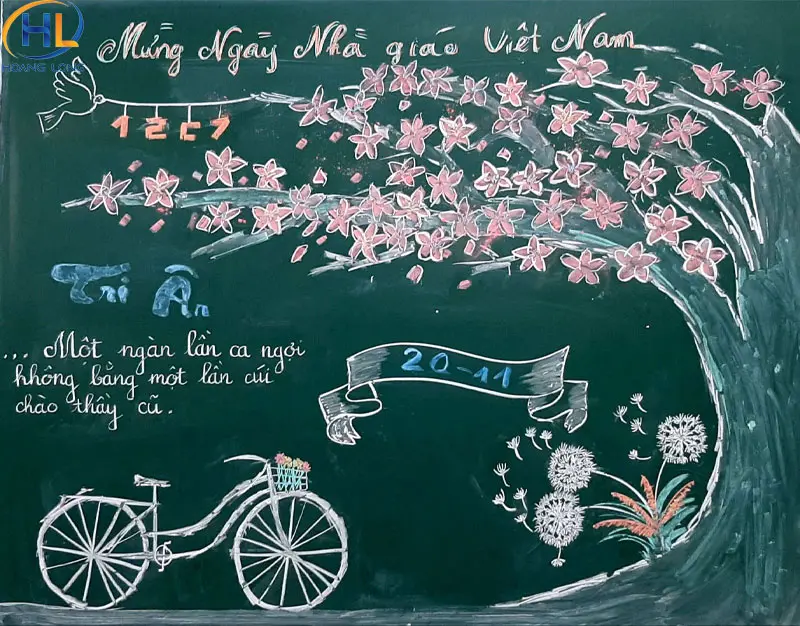 HL
HOANG LONG
Mừng Ngày Nhà giáo Việt Nam
12C7
Tri Ân
... Một ngàn lần ca ngợi
không bằng một lần cúi
chào thầy cũ.
20-11